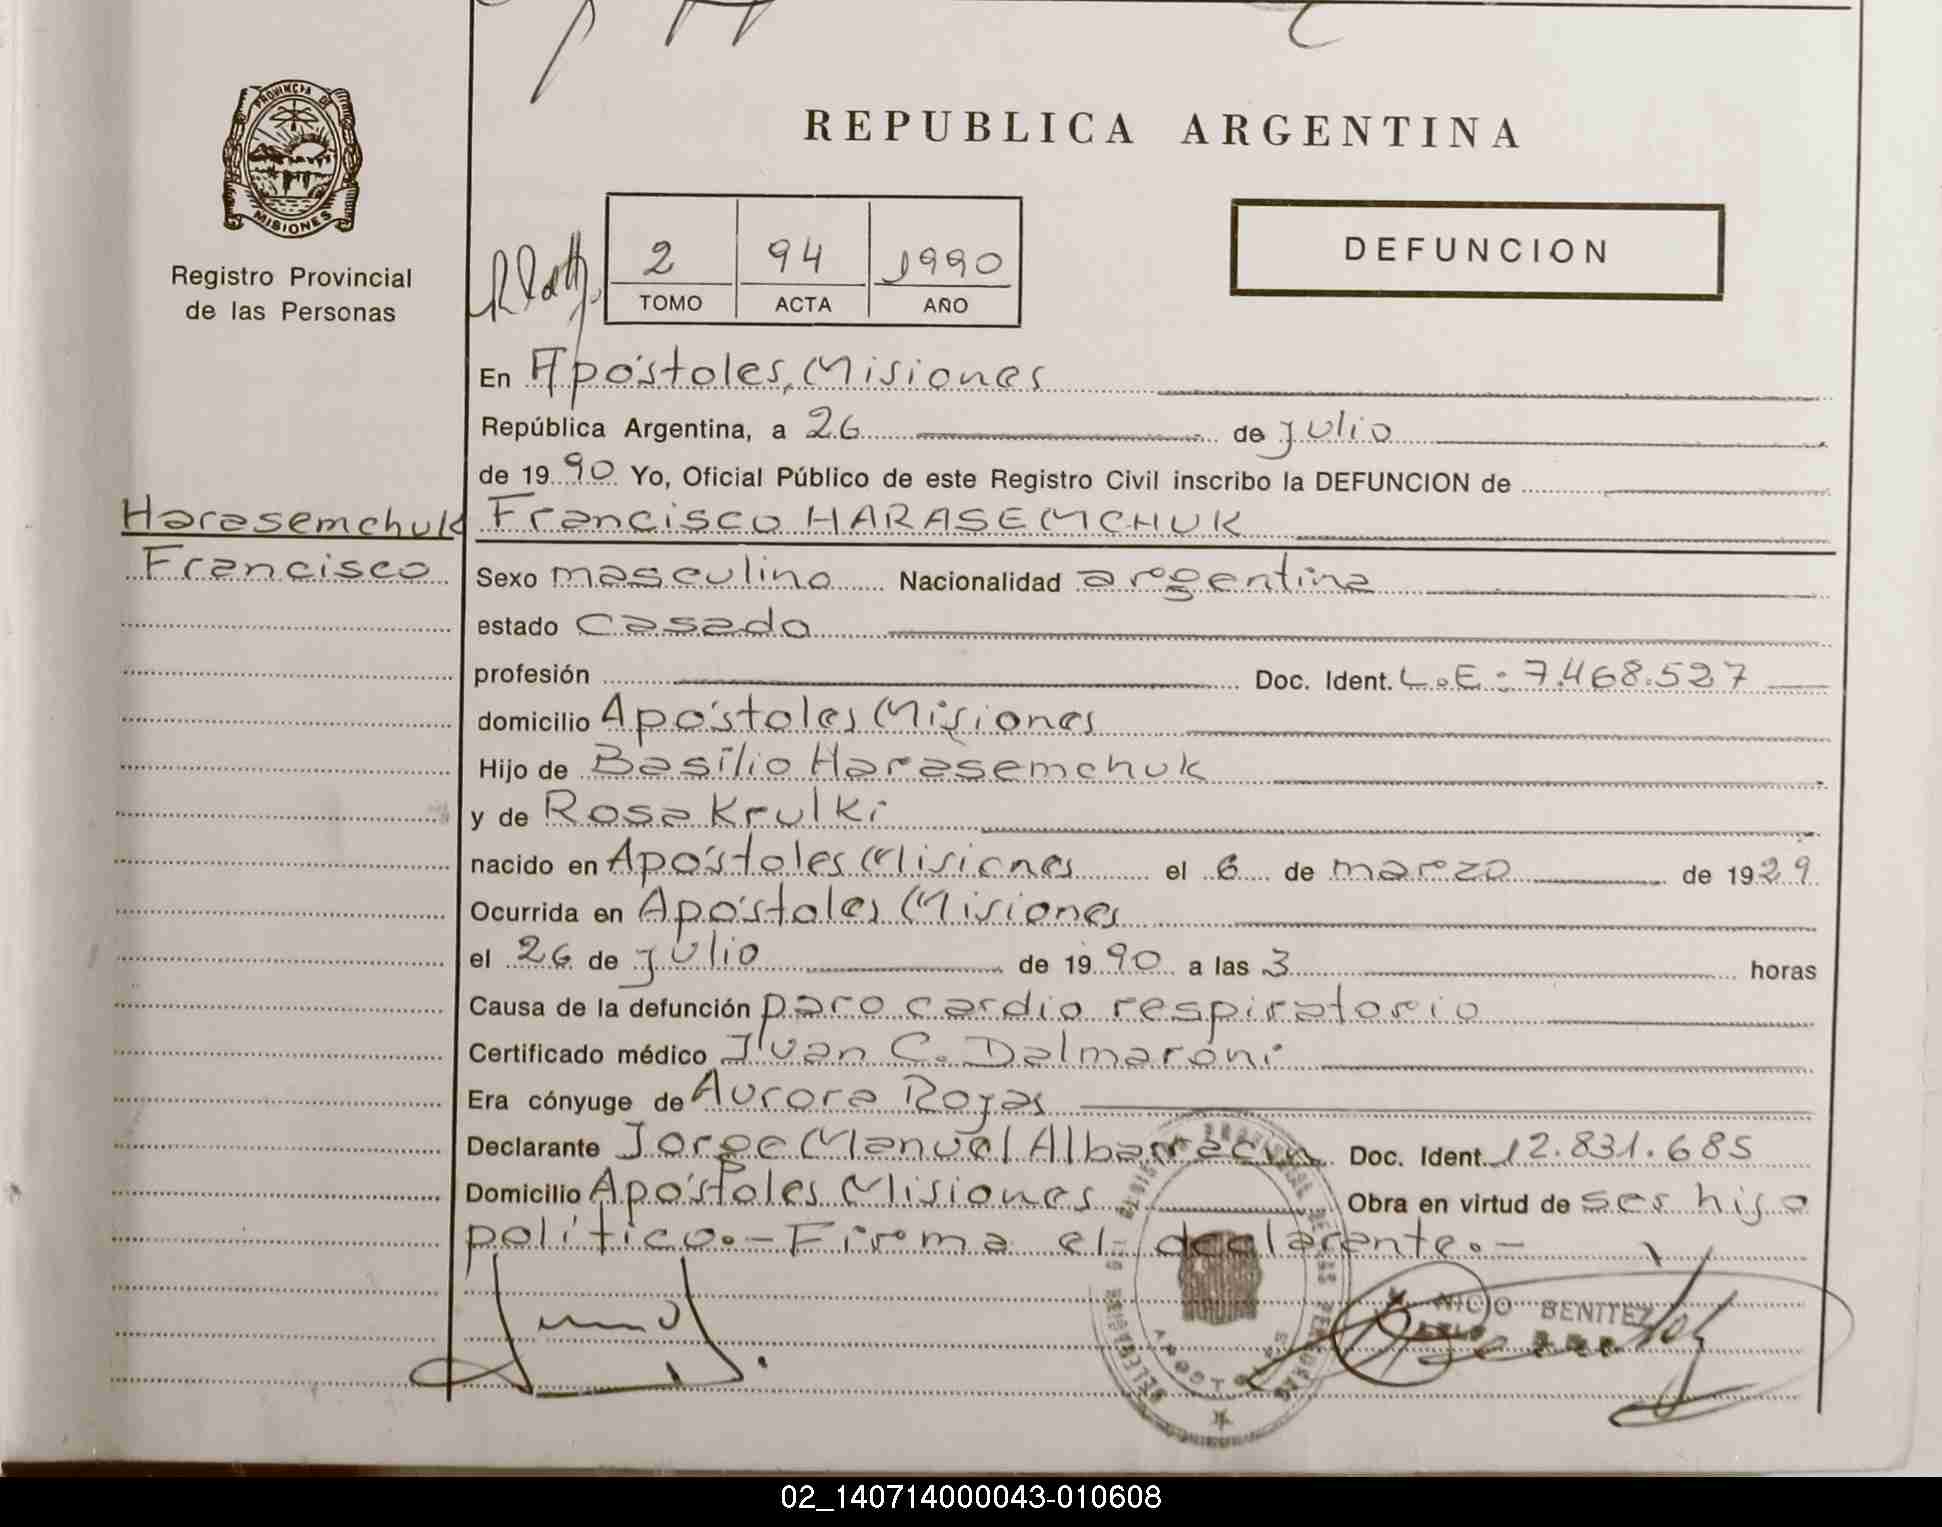 REPUBLICA ARGENTINA
PROVINCIA DE
MISIONES
Registro Provincial
de las Personas
2 94 1990
TOMO ACTA AÑO
DEFUNCION
En Apóstoles, Misiones
República Argentina, a 26 de julio
de 1990 Yo, Oficial Público de este Registro Civil inscribo la DEFUNCION de
Harasemchuk
Francisco
Francisco HARASEMCHUK
Sexo masculino Nacionalidad argentina
estado casado
profesión Doc. Ident. L.E: 7.468.527
domicilio Apóstoles Misiones
Hijo de Basilio Harasemchuk
y de Rosa Krulki
nacido en Apóstoles Misiones el 6 de marzo de 1929
Ocurrida en Apóstoles Misiones
el 26 de julio de 1990 a las 3 horas
Causa de la defunción paro cardio respiratorio
Certificado médico Juan C. Dalmaroni
Era cónyuge de Aurora Rojas
Declarante Jorge Manuel Albarracin Doc. Ident. 12.831.685
Domicilio Apóstoles Misiones Obra en virtud de ser hijo
político.- Firma el declarante.-
BENITEZ
02_140714000043-010608